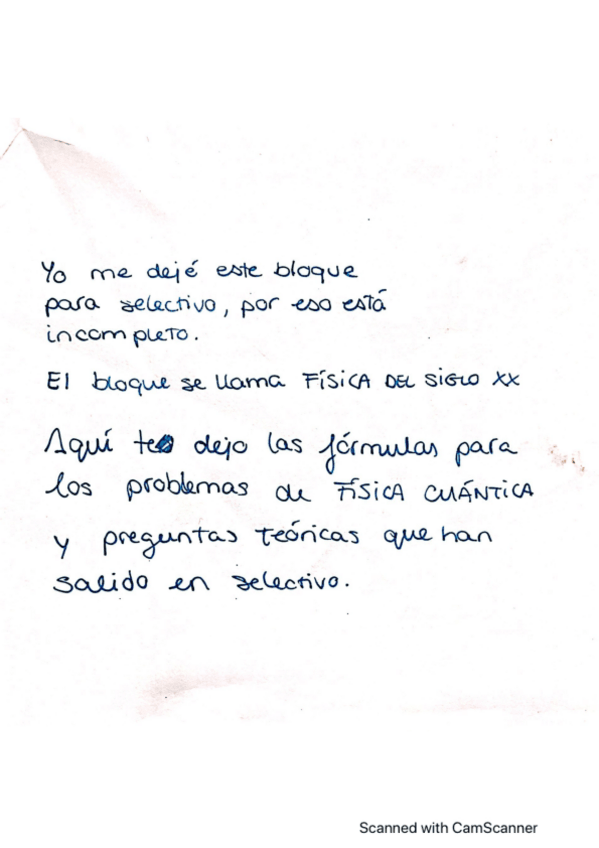 Yo me dejé este bloque
para selectivo, por eso está
incompleto.
El bloque se llama FÍSICA DEL SIGLO XX
Aquí te dejo las fórmulas para
los problemas de FÍSICA CUÁNTICA
y preguntas teóricas que han
salido en selectivo.
Scanned with CamScanner